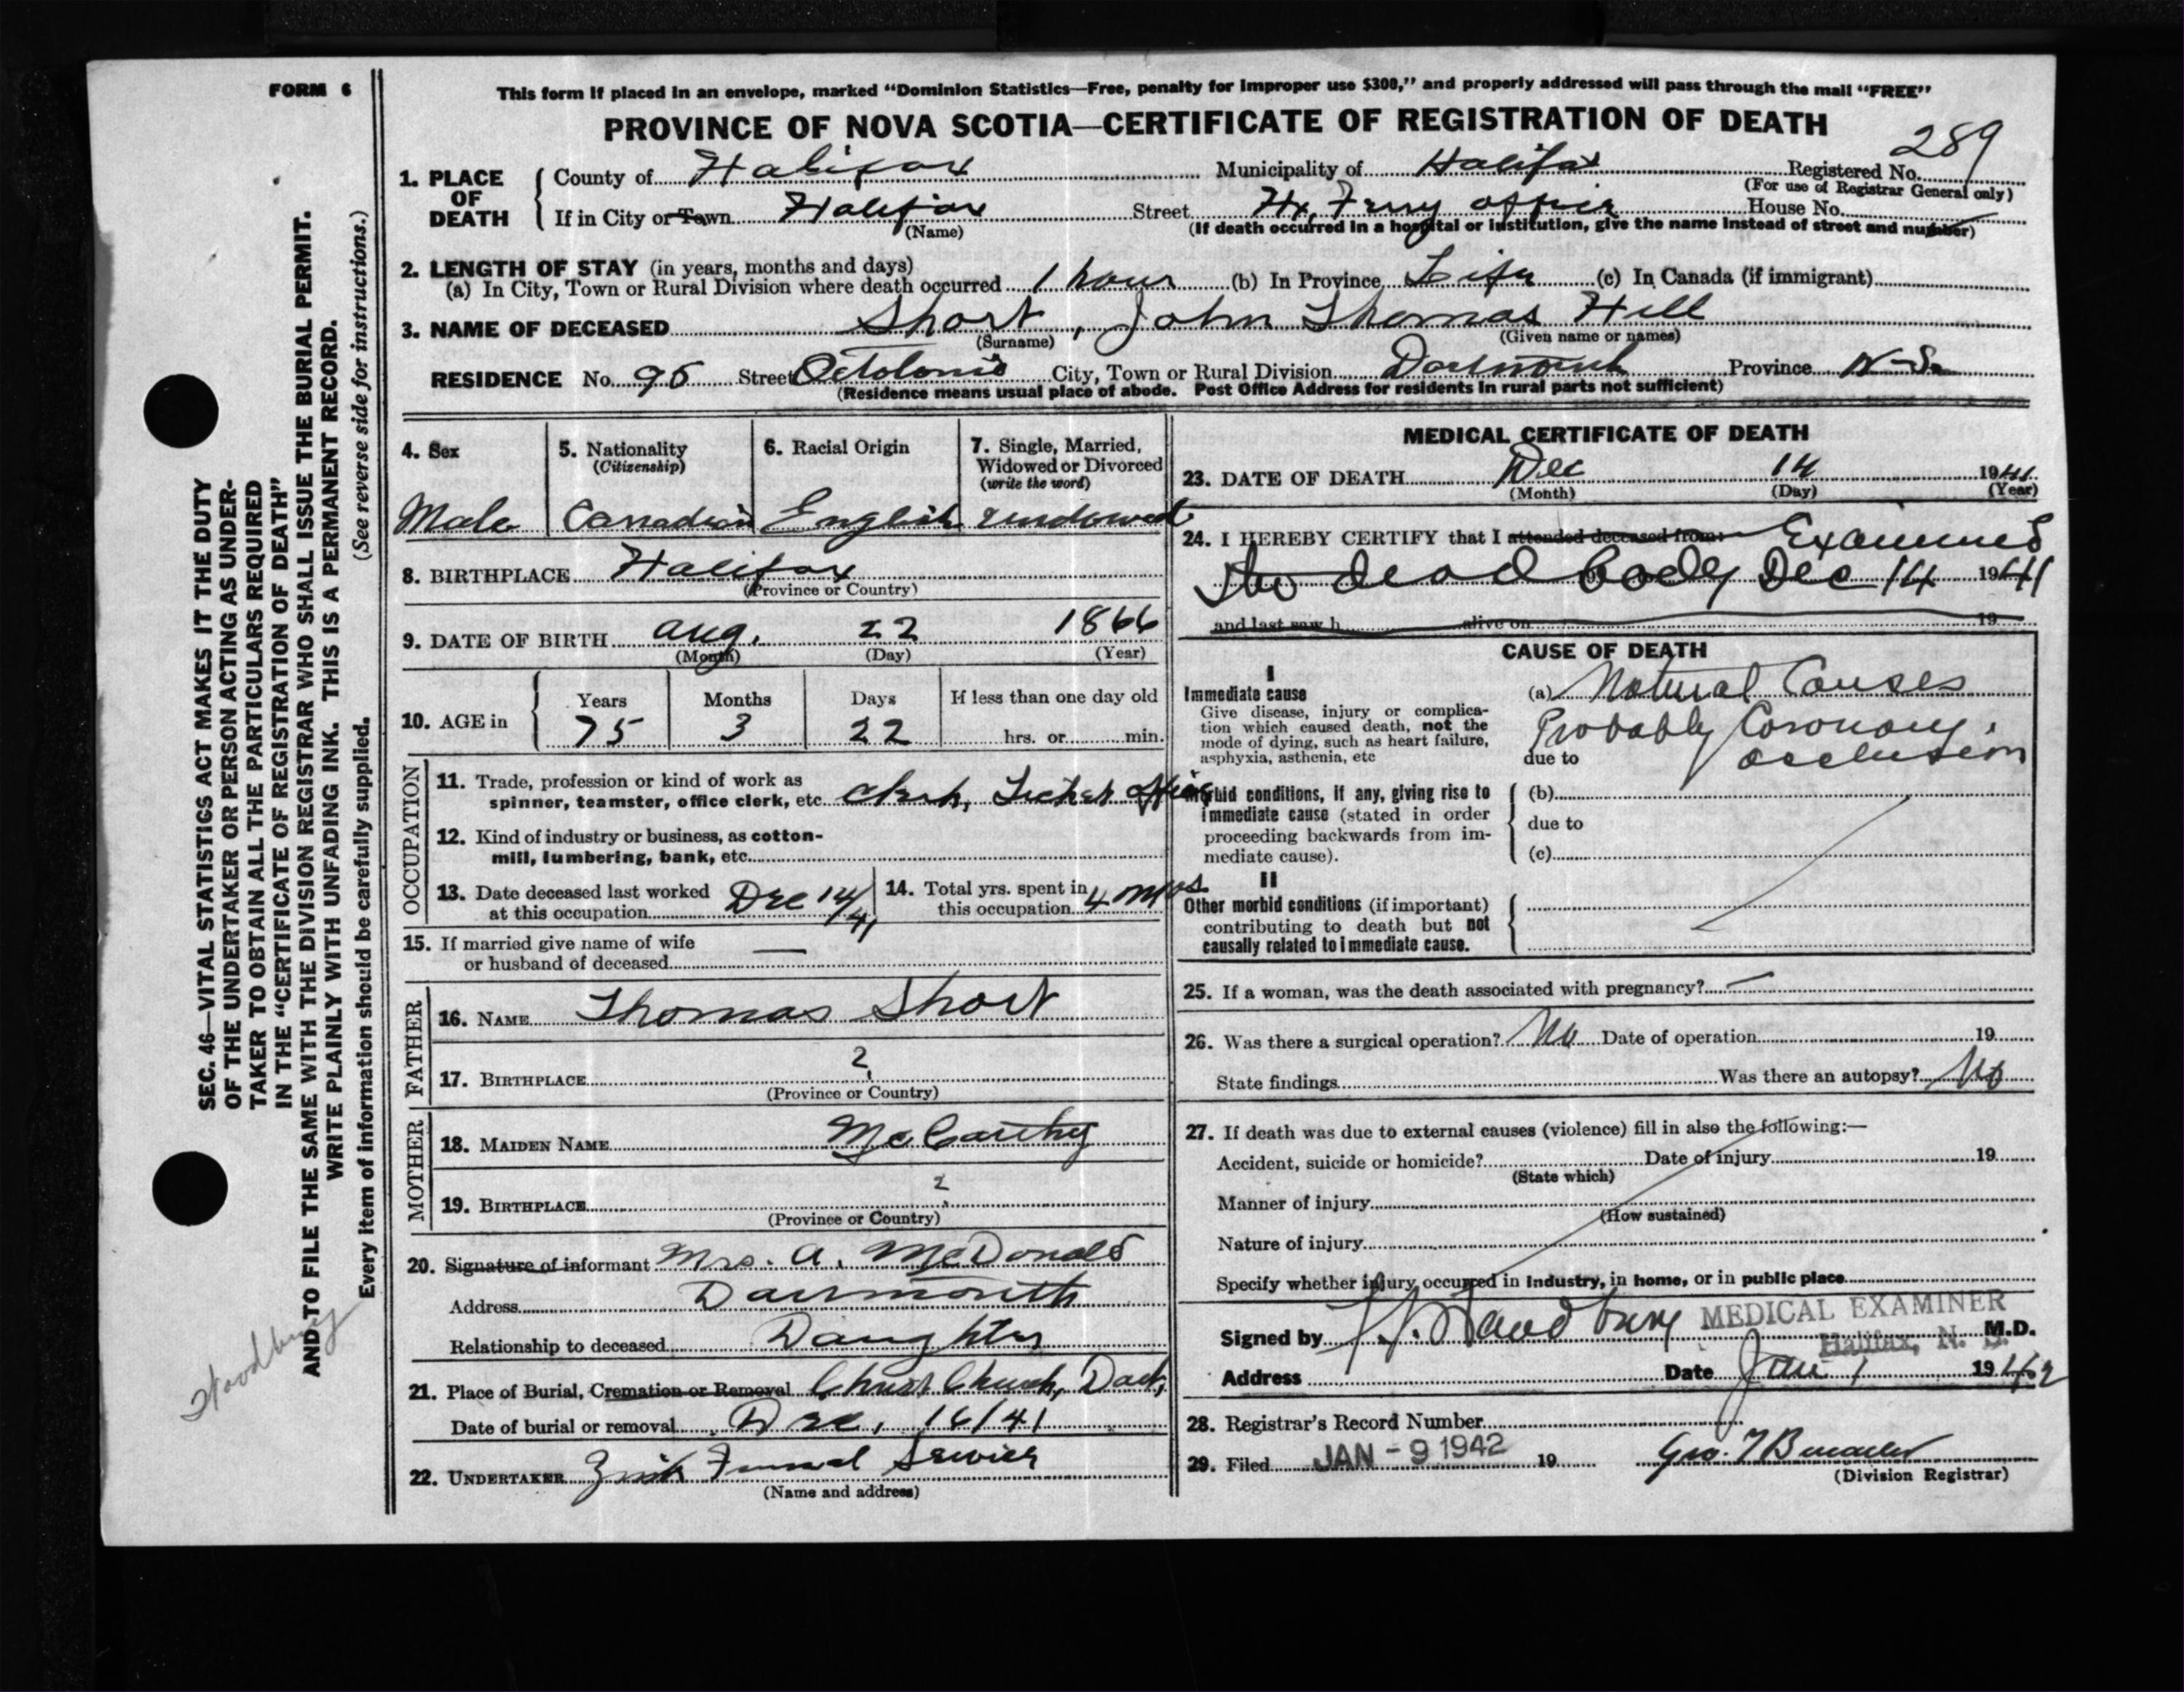 FORM 6
This form if placed in an envelope, marked “Dominion Statistics—Free, penalty for improper use $300,” and properly addressed will pass through the mail “FREE”
PROVINCE OF NOVA SCOTIA—CERTIFICATE OF REGISTRATION OF DEATH
289
1. PLACE OF DEATH
County of Halifax Municipality of Halifax Registered No.
(For use of Registrar General only)
If in City or Town Halifax Street Hx, Ferry office House No.
(Name) (If death occurred in a hospital or institution, give the name instead of street and number)
2. LENGTH OF STAY (in years, months and days)
(a) In City, Town or Rural Division where death occurred 1 hour (b) In Province Life (c) In Canada (if immigrant)
3. NAME OF DECEASED Short, John Thomas Hill
(Surname) (Given name or names)
RESIDENCE No. 95 Street City, Town or Rural Division Dartmouth Province N-S.
(Residence means usual place of abode. Post Office Address for residents in rural parts not sufficient)
4. Sex
Male
5. Nationality
(Citizenship)
Canadian
6. Racial Origin
English
7. Single, Married,
Widowed or Divorced
(write the word)
widowed
8. BIRTHPLACE Halifax
(Province or Country)
9. DATE OF BIRTH Aug. 22 1866
(Month) (Day) (Year)
10. AGE in
Years Months Days If less than one day old
75 3 22 hrs. or min.
OCCUPATION
11. Trade, profession or kind of work as
spinner, teamster, office clerk, etc. Clerk, Ticket Office
12. Kind of industry or business, as cotton-
mill, lumbering, bank, etc.
13. Date deceased last worked
at this occupation Dec 14/41
14. Total yrs. spent in
this occupation 4 mos
15. If married give name of wife
or husband of deceased —
FATHER
16. NAME Thomas Short
17. BIRTHPLACE ?
(Province or Country)
MOTHER
18. MAIDEN NAME McCarthy
19. BIRTHPLACE ?
(Province or Country)
20. Signature of informant Mrs. A. McDonald
Address Dartmouth
Relationship to deceased Daughter
21. Place of Burial, Cremation or Removal Christ Church, Dart,
Date of burial or removal Dec, 16/41
22. UNDERTAKER Funeral Service
(Name and address)
MEDICAL CERTIFICATE OF DEATH
23. DATE OF DEATH Dec 14 1941
(Month) (Day) (Year)
24. I HEREBY CERTIFY that I attended deceased from: Examined
the dead body Dec 14 1941
and last saw h alive on 19
CAUSE OF DEATH
I
Immediate cause
Give disease, injury or complica-
tion which caused death, not the
mode of dying, such as heart failure,
asphyxia, asthenia, etc
(a) Natural Causes
Probably Coronary
due to occlusion
Morbid conditions, if any, giving rise to
immediate cause (stated in order
proceeding backwards from im-
mediate cause).
(b)
due to
(c)
II
Other morbid conditions (if important)
contributing to death but not
causally related to immediate cause.
25. If a woman, was the death associated with pregnancy? —
26. Was there a surgical operation? No Date of operation 19
State findings Was there an autopsy? No
27. If death was due to external causes (violence) fill in also the following:—
Accident, suicide or homicide? Date of injury 19
(State which)
Manner of injury
(How sustained)
Nature of injury
Specify whether injury occurred in industry, in home, or in public place
Signed by MEDICAL EXAMINER
Halifax, N. S. M.D.
Address Date Jan 1 1942
28. Registrar's Record Number
29. Filed JAN - 9 1942 19
(Division Registrar)
SEC. 46—VITAL STATISTICS ACT MAKES IT THE DUTY
OF THE UNDERTAKER OR PERSON ACTING AS UNDER-
TAKER TO OBTAIN ALL THE PARTICULARS REQUIRED
IN THE “CERTIFICATE OF REGISTRATION OF DEATH”
AND TO FILE THE SAME WITH THE DIVISION REGISTRAR WHO SHALL ISSUE THE BURIAL PERMIT.
WRITE PLAINLY WITH UNFADING INK. THIS IS A PERMANENT RECORD.
Every item of information should be carefully supplied. (See reverse side for instructions.)
Woodbury